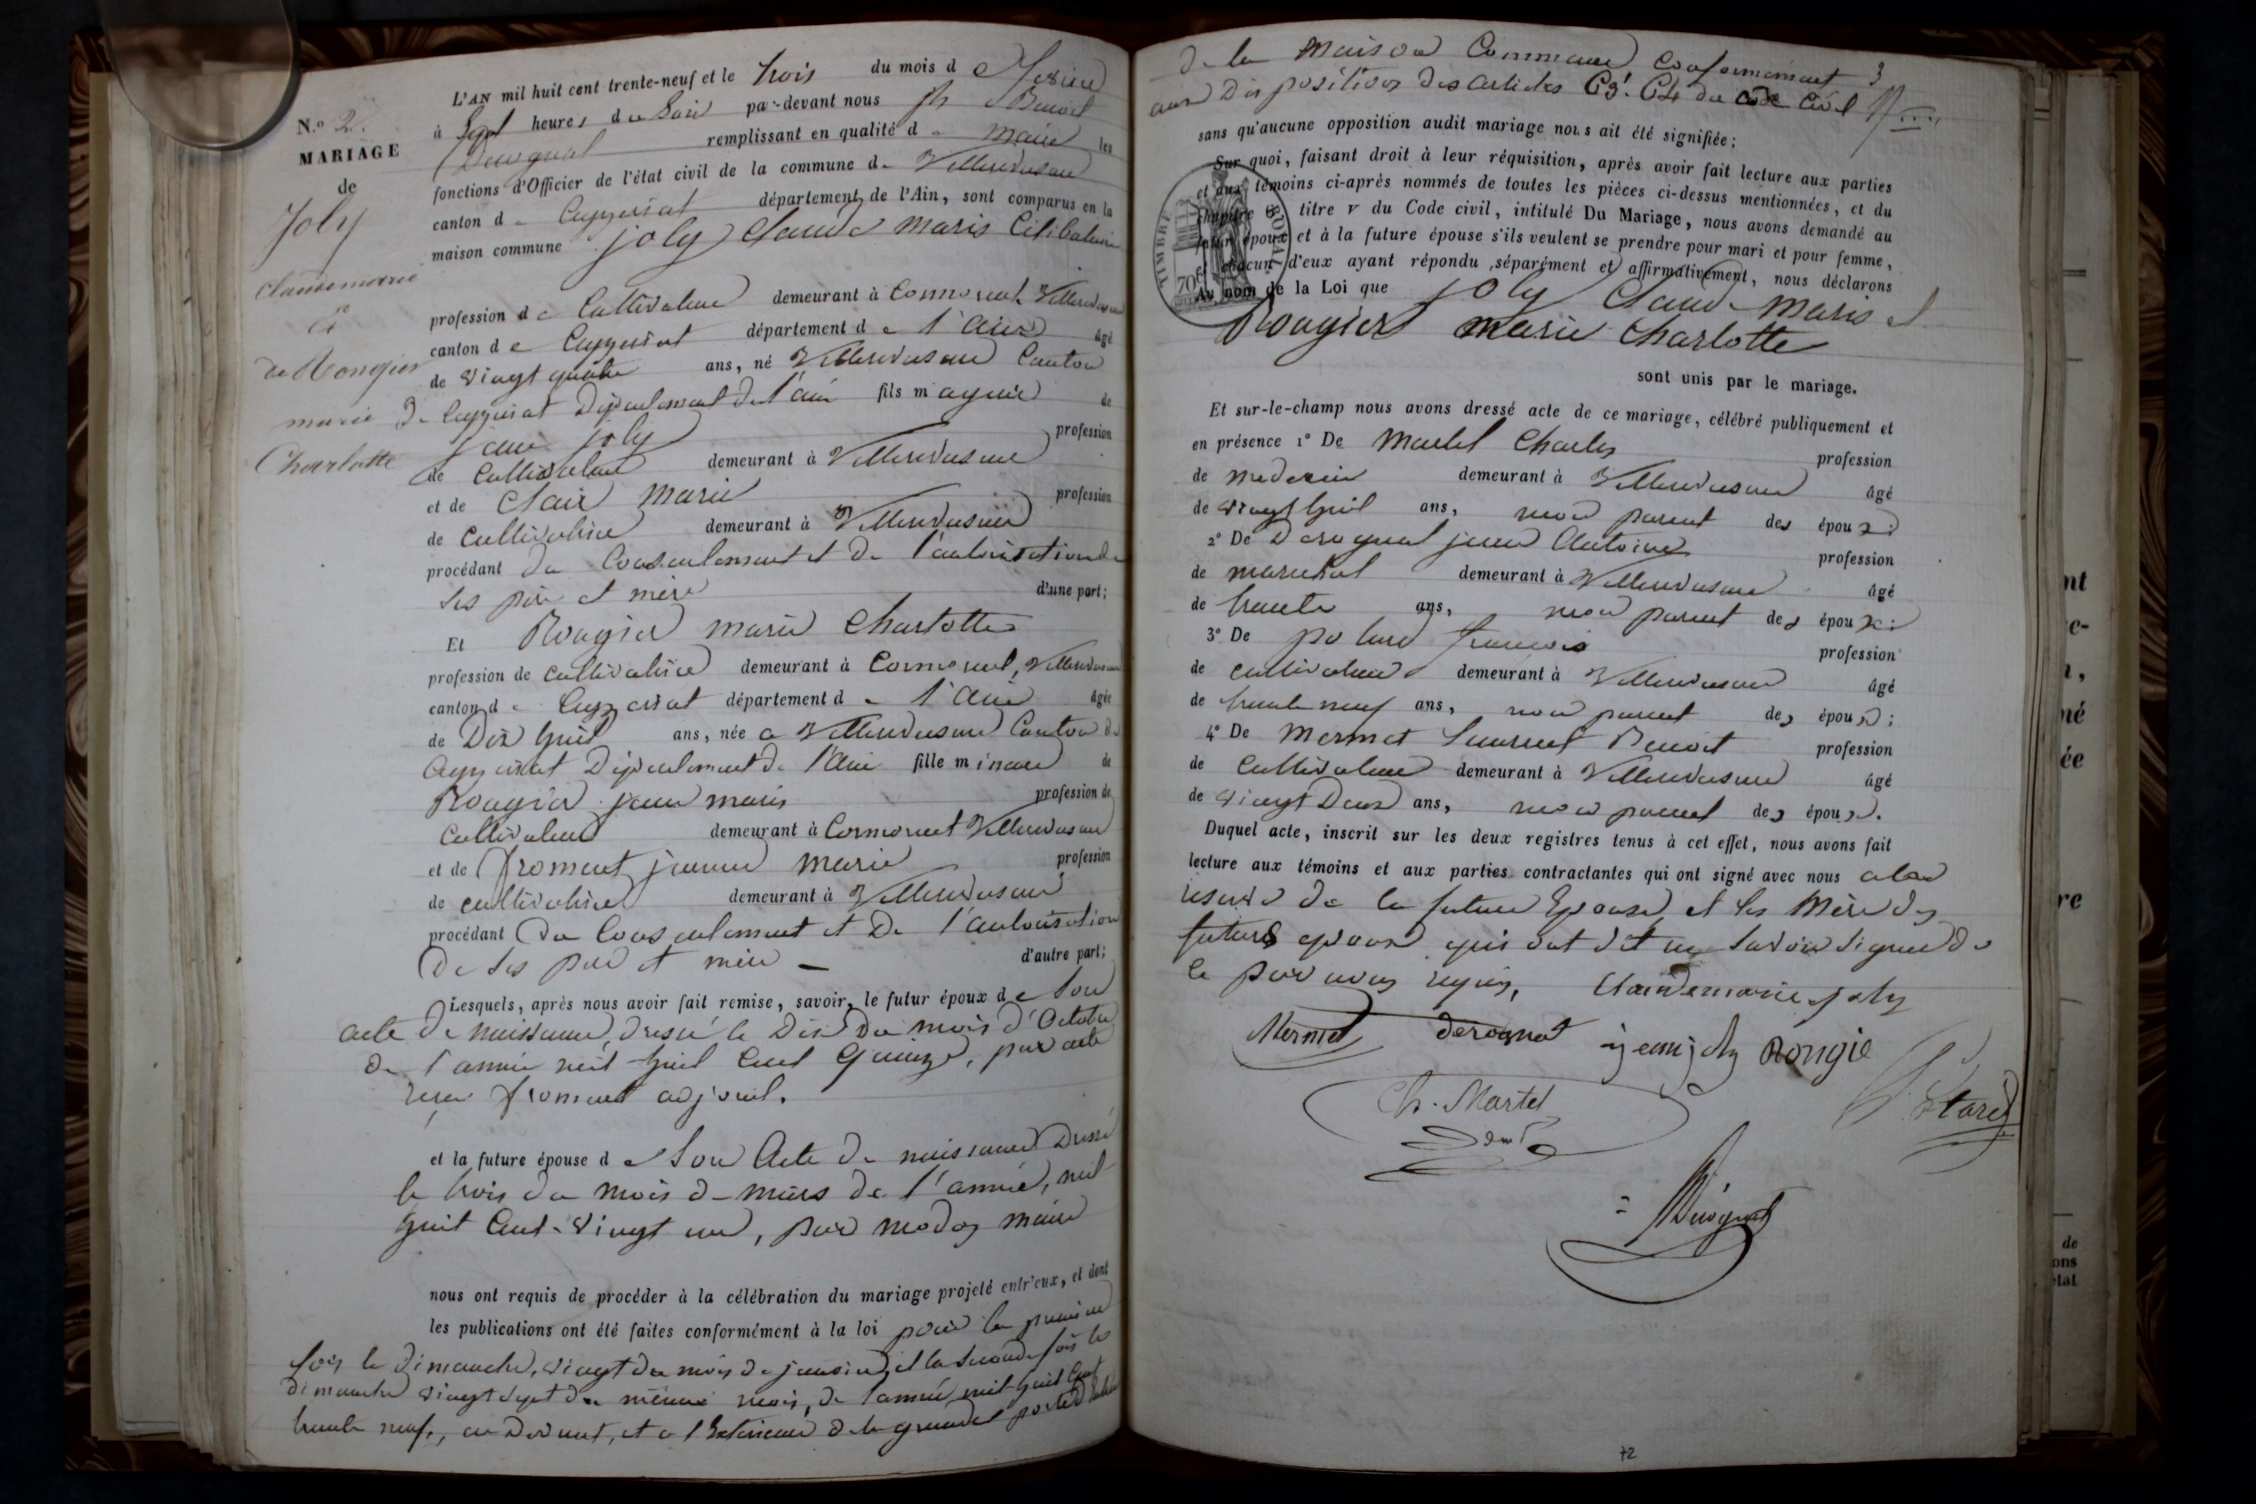 N.º 2.
MARIAGE
de
Joly
Claude marie
Et
de Rougier
marie
Charlotte
L'AN mil huit cent trente-neuf et le trois du mois d e février
à Sept heures du Soir par-devant nous Benoit
Derognat remplissant en qualité de maire les
fonctions d'Officier de l'état civil de la commune de Villereversure
canton de Ceyzeriat département de l'Ain, sont comparus en la
maison commune joly Claude Marie Célibataire
profession de Cultivateur demeurant à Cormorent, Villereversure
canton de Ceyzeriat département de l'Ain âgé
de vingt quatre ans, né Villereversure Canton
de Ceyzeriat Département de l'ain fils majeur de
jean joly profession
de Cultivateur demeurant à Villereversure
et de Clair Marie profession
de Cultivatrice demeurant à Villereversure
procédant du Consentement et de l'autorisation de
ses père et mère d'une part;
Et Rougier marie Charlotte
profession de cultivatrice demeurant à Cormorent, Villereversure
canton de Ceyzeriat département de l'ain âgée
de Dix huit ans, née a Villereversure Canton de
Ceyzeriat Département de l'Ain fille mineure de
Rougier jean marie profession de
Cultivateur demeurant à Cormorent Villereversure
et de froment jeanne marie profession
de cultivatrice demeurant à Villereversure
procédant Du Consentement et De l'autorisation
De ses père et mère d'autre part;
Lesquels, après nous avoir fait remise, savoir, le futur époux de Son
acte de naissance, dressé le Dix du mois d'Octobre
de l'année mil huit Cent Quinze, par acte
reçu froment adjoint.
et la future épouse de Son Acte de naissance Dressé
le trois du mois de mars de l'année, mil
huit Cent vingt un, par modas maire
nous ont requis de procéder à la célébration du mariage projeté entr'eux, et dont
les publications ont été faites conformément à la loi pour la première
fois le Dimanche, vingt du mois de janvier, et la seconde fois le
Dimanche vingt sept du même mois, de l'année mil huit Cent
trente neuf, au Devant, et a l'Extérieur de la grande porte d'entrée
3
de la Maison Commune Conformément
aux Dispositions des articles 63. 64 du code Civil
sans qu'aucune opposition audit mariage nous ait été signifiée;
Sur quoi, faisant droit à leur réquisition, après avoir fait lecture aux parties
et aux témoins ci-après nommés de toutes les pièces ci-dessus mentionnées, et du
chapitre 6 titre V du Code civil, intitulé Du Mariage, nous avons demandé au
futur époux et à la future épouse s'ils veulent se prendre pour mari et pour femme,
et chacun d'eux ayant répondu séparément et affirmativement, nous déclarons
Au nom de la Loi que joly Claude Marie et
Rougier marie Charlotte
sont unis par le mariage.
TIMBRE ROYAL
70c
Et sur-le-champ nous avons dressé acte de ce mariage, célébré publiquement et
en présence 1º De Martel Charles profession
de medecin demeurant à Villereversure âgé
de vingt huit ans, non parent des époux:
2º De Derognat jean Antoine profession
de marechal demeurant à Villereversure âgé
de trente ans, non parent des époux:
3º De François profession
de cultivateur demeurant à Villereversure âgé
de trente neuf ans, non parent des époux;
4º De Mermet Benoit profession
de Cultivateur demeurant à Villereversure âgé
de vingt Deux ans, non parent des époux.
Duquel acte, inscrit sur les deux registres tenus à cet effet, nous avons fait
lecture aux témoins et aux parties contractantes qui ont signé avec nous a la
reserve de la future Epouse, et les Mère des
futurs epoux qui ont dit ne savoir signer de
ce par nous requis. Claude marie joly
Mermet derognat jean joly Rougie
Ch. Martel
Derognat
72